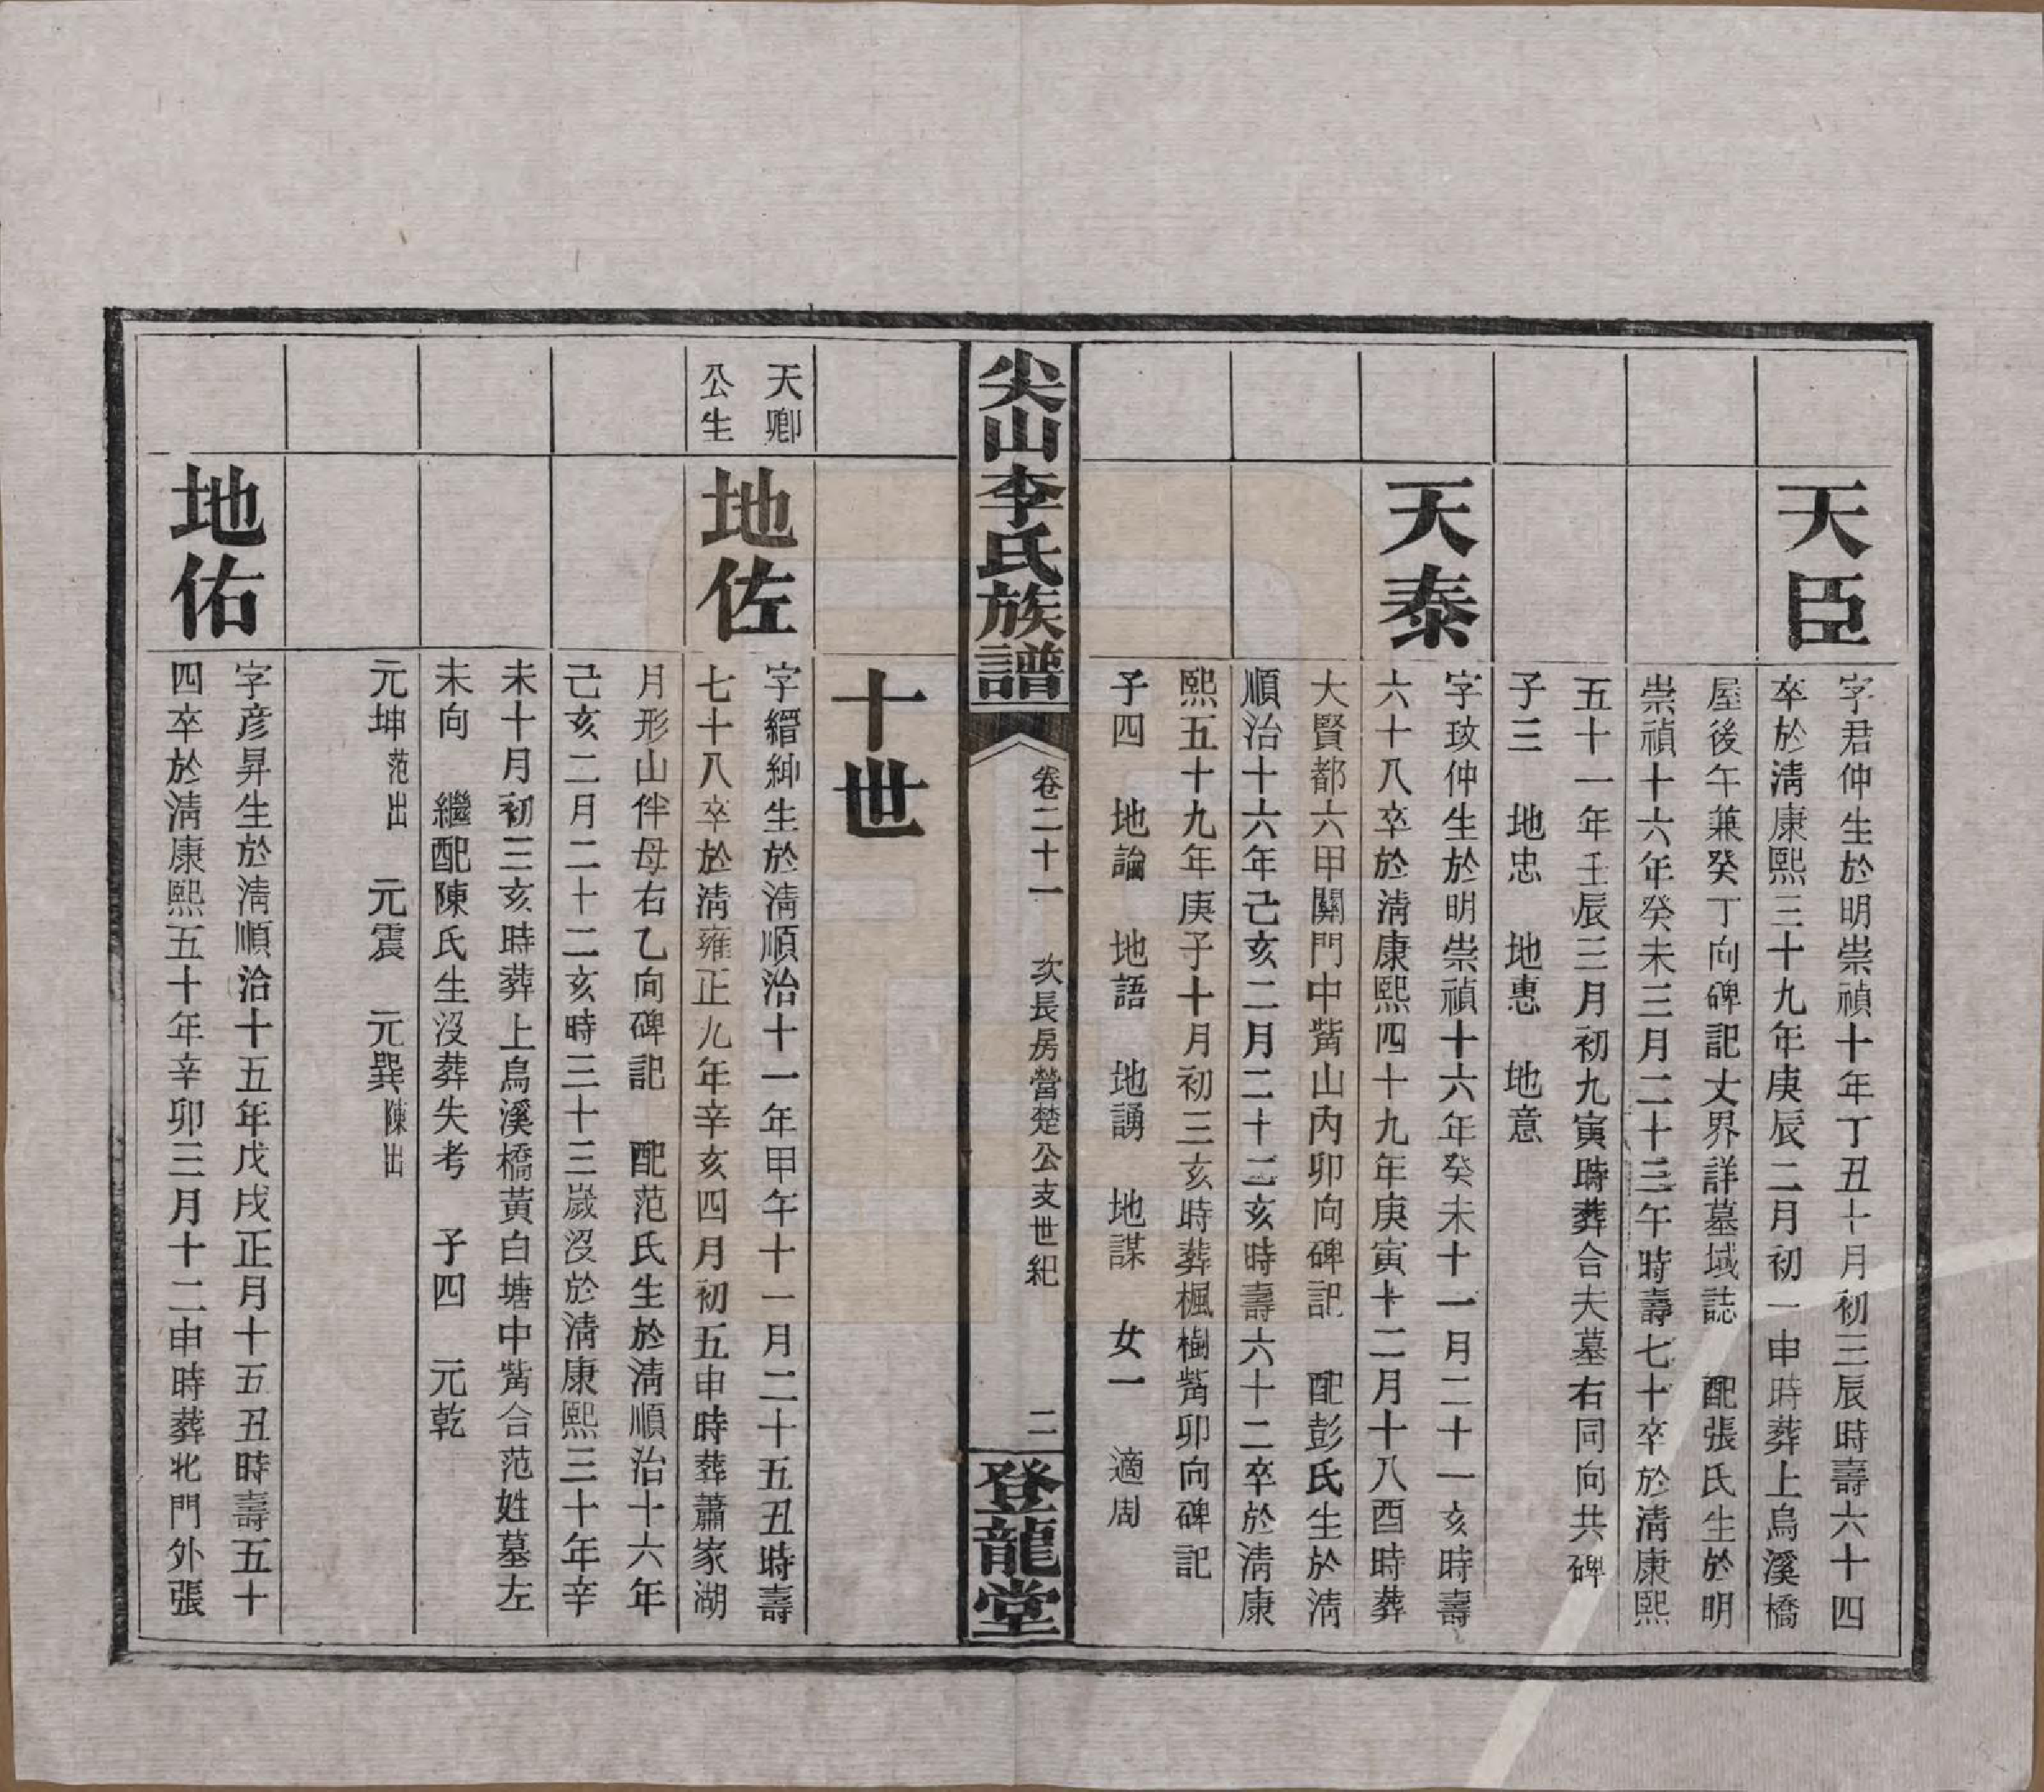 天臣
字君仲生於明崇禎十年丁丑十月初三辰時壽六十四
卒於淸康熙三十九年庚辰二月初一申時葬上烏溪橋
屋後午兼癸丁向碑記丈界詳墓域誌　配張氏生於明
崇禎十六年癸未三月二十三午時壽七十卒於淸康熙
五十一年壬辰三月初九寅時葬合夫墓右同向共碑
子三　地忠　地惠　地意
天泰
字玫仲生於明崇禎十六年癸未十一月二十一亥時壽
六十八卒於淸康熙四十九年庚寅十二月十八酉時葬
大賢都六甲關門中觜山內卯向碑記　配彭氏生於淸
順治十六年己亥二月二十二亥時壽六十二卒於淸康
熙五十九年庚子十月初三亥時葬楓樹觜卯向碑記
子四　地論　地語　地誦　地謀　女一　適周
尖山李氏族譜
卷二十一　次長房營楚公支世紀
二
登龍堂
十世
天卿
公生
地佐
字縉紳生於淸順治十一年甲午十一月二十五丑時壽
七十八卒於淸雍正九年辛亥四月初五申時葬蕭家湖
月形山伴母右乙向碑記　配范氏生於淸順治十六年
己亥二月二十二亥時三十三歲沒於淸康熙三十年辛
未十月初三亥時葬上烏溪橋黃白塘中觜合范姓墓左
未向　繼配陳氏生沒葬失考　子四　元乾
元坤范出　元震　元巽陳出
地佑
字彥昇生於淸順治十五年戊戌正月十五丑時壽五十
四卒於淸康熙五十年辛卯三月十二申時葬北門外張